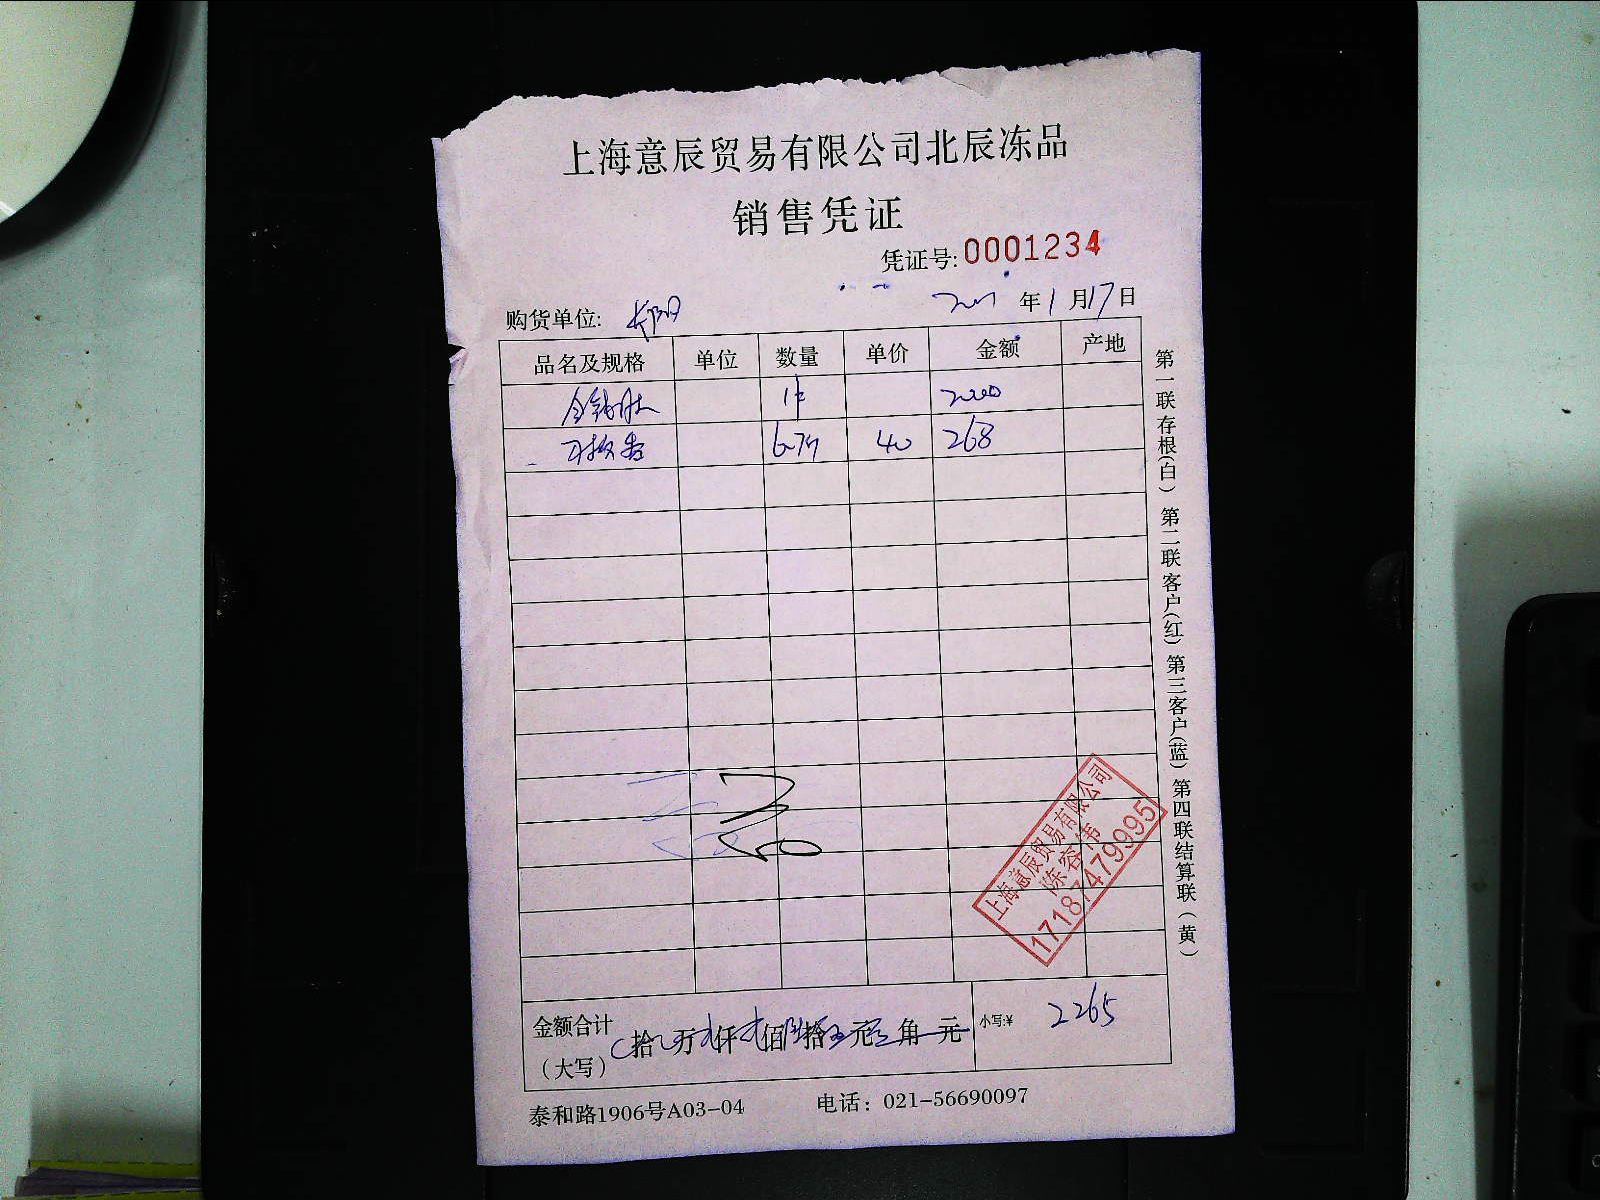 上海意辰贸易有限公司北辰冻品
销售凭证
凭证号:0001234
购货单位: 长阳 年1月17日
品名及规格 单位 数量 单价 金额 产地
金钱肚 1件 2000
6.7斤 40 268
金额合计(大写) 拾 万 仟 佰 拾 元 角 元 小写:¥ 2265
泰和路1906号A03-04 电话：021-56690097
第一联存根(白) 第二联客户(红) 第三客户(蓝) 第四联结算联(黄)
上海意辰贸易有限公司
陈容伟
17187479995